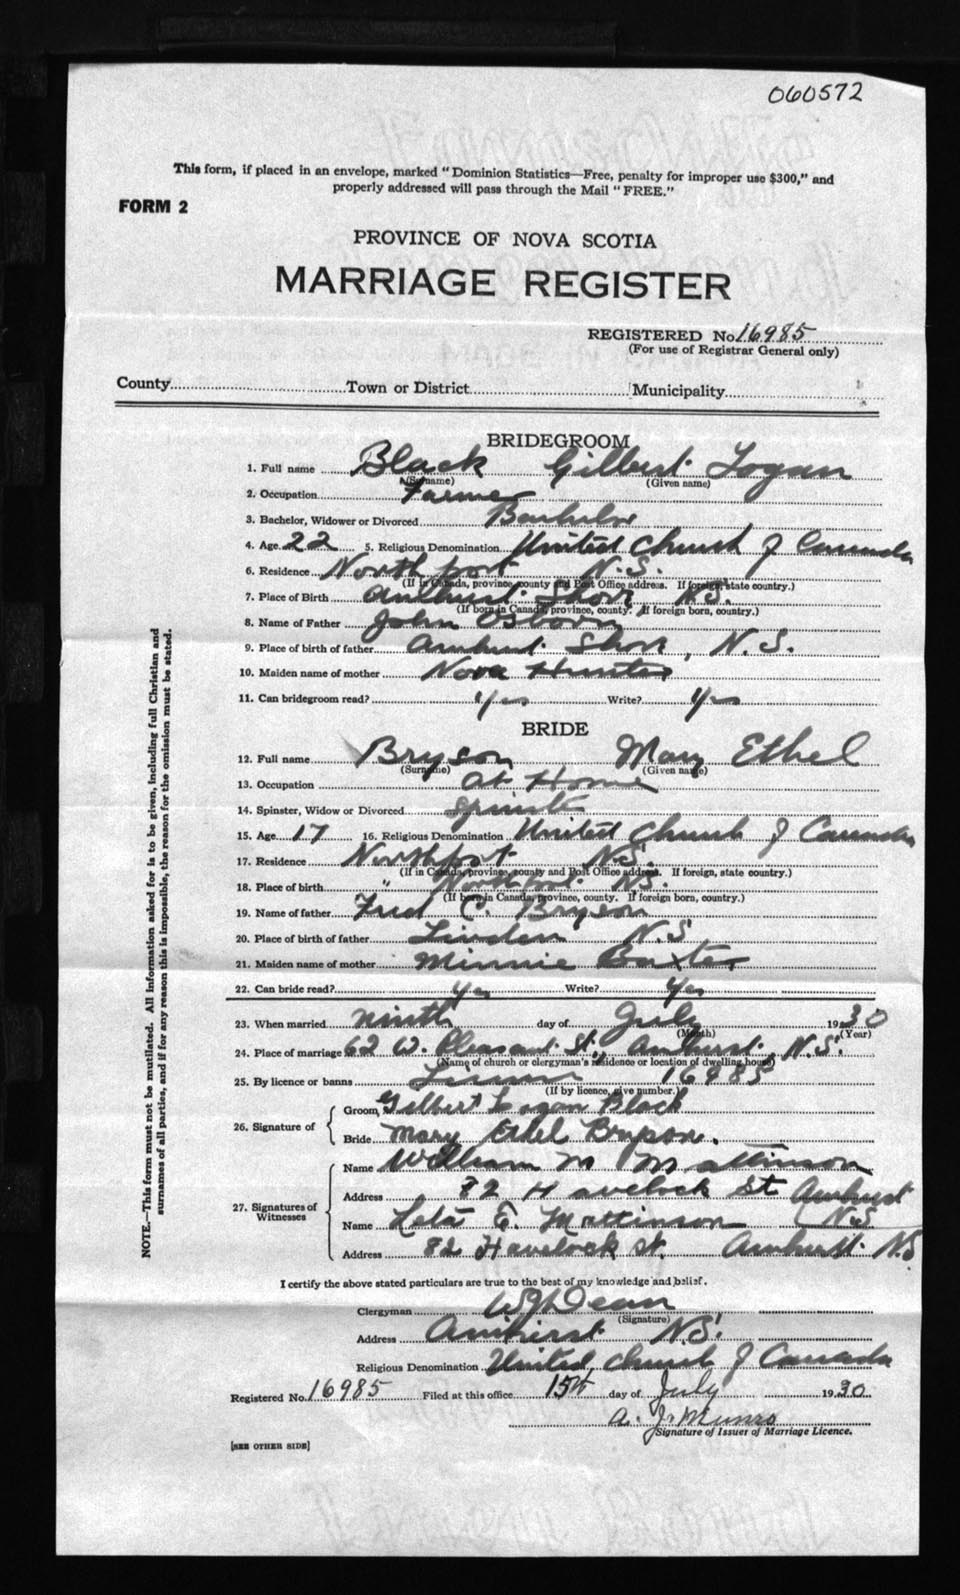 060572
This form, if placed in an envelope, marked "Dominion Statistics—Free, penalty for improper use $300," and
properly addressed will pass through the Mail "FREE."
FORM 2
PROVINCE OF NOVA SCOTIA
MARRIAGE REGISTER
REGISTERED No. 16985
(For use of Registrar General only)
County Town or District Municipality
BRIDEGROOM
1. Full name Black Gilbert Logan
(Surname) (Given name)
2. Occupation Farmer
3. Bachelor, Widower or Divorced Bachelor
4. Age 22 5. Religious Denomination United Church of Canada
6. Residence Northport N.S.
(If in Canada, province, county and Post Office address. If foreign, state country.)
7. Place of Birth Amherst Shore N.S.
(If born in Canada, province, county. If foreign born, country.)
8. Name of Father John Osborn
9. Place of birth of father Amherst Shore, N.S.
10. Maiden name of mother Nora Hunter
11. Can bridegroom read? Yes Write? Yes
BRIDE
12. Full name Bryson Mary Ethel
(Surname) (Given name)
13. Occupation At Home
14. Spinster, Widow or Divorced Spinster
15. Age 17 16. Religious Denomination United Church of Canada
17. Residence Northport N.S.
(If in Canada, province, county and Post Office address. If foreign, state country.)
18. Place of birth " Northport N.S.
(If born in Canada, province, county. If foreign born, country.)
19. Name of father Fred C. Bryson
20. Place of birth of father Linden N.S
21. Maiden name of mother Minnie Baxter
22. Can bride read? Yes Write? Yes
23. When married ninth day of July 1930
(Month) (Year)
24. Place of marriage 62 W. Pleasant St., Amherst, N.S.
(Name of church or clergyman's residence or location of dwelling house)
25. By licence or banns License 16985
(If by licence, give number.)
26. Signature of
Groom, Gilbert Logan Black
Bride Mary Ethel Bryson.
27. Signatures of Witnesses
Name William M Mattinson
Address 82 Havelock St Amherst
N.S.
Name Leta E. Mattinson
Address 82 Havelock St. Amherst. N.S
I certify the above stated particulars are true to the best of my knowledge and belief.
Clergyman W J Dean
(Signature)
Address Amherst N.S.
Religious Denomination United Church of Canada
Registered No. 16985 Filed at this office 15th day of July 1930
A. J. Munro
Signature of Issuer of Marriage Licence.
[SEE OTHER SIDE]
NOTE.—This form must not be mutilated. All information asked for is to be given, including full Christian and
surnames of all parties, and if for any reason this is impossible, the reason for the omission must be stated.